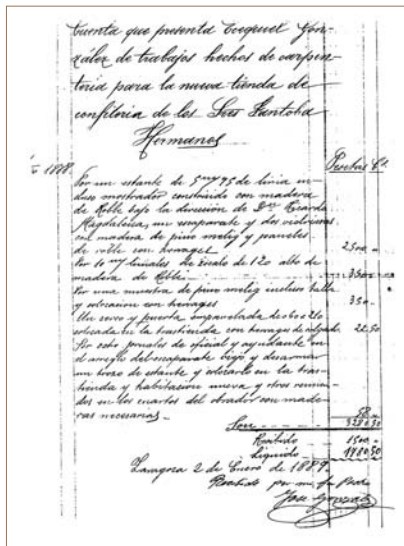 Cuenta que presenta Ezequiel Gon-
zález de trabajos hechos de carpin-
teria para la nueva tienda de
confiteria de los Sres Santolaa
Hermanos
1888
Pesetas Cs.
Por un estante de 5 my 95 de linia in-
cluso mostrador construido con madera
de Roble bajo la dirección de Dn Ricardo
Magdalena, un escaparate y dos vidrieras
con madera de pino melis y paneles
de roble con herrages 2500
Por 10 my liniales de zocalo de 120 alto de
madera de Roble 350
Por una muestra de pino melis incluso talla
y colocacion con herrages 350
Un cerco y puerta
colocada en la trastienda con herrages de colgado 22.50
Por ocho jornales de oficial y ayudante en
el arreglo del escaparate biejo y desarmar
un trozo de estante y colocarlo en la tras-
tienda y habitacion nueva y otros remien-
dos en los cuartos del obrador con made-
ras necesarias 58
Son 3280.50
Recibido 1500
Liquido 1780.50
Zaragoza 2 de Enero de 1889.
Recibido por mi Sr Padre
Jose Gonzalez